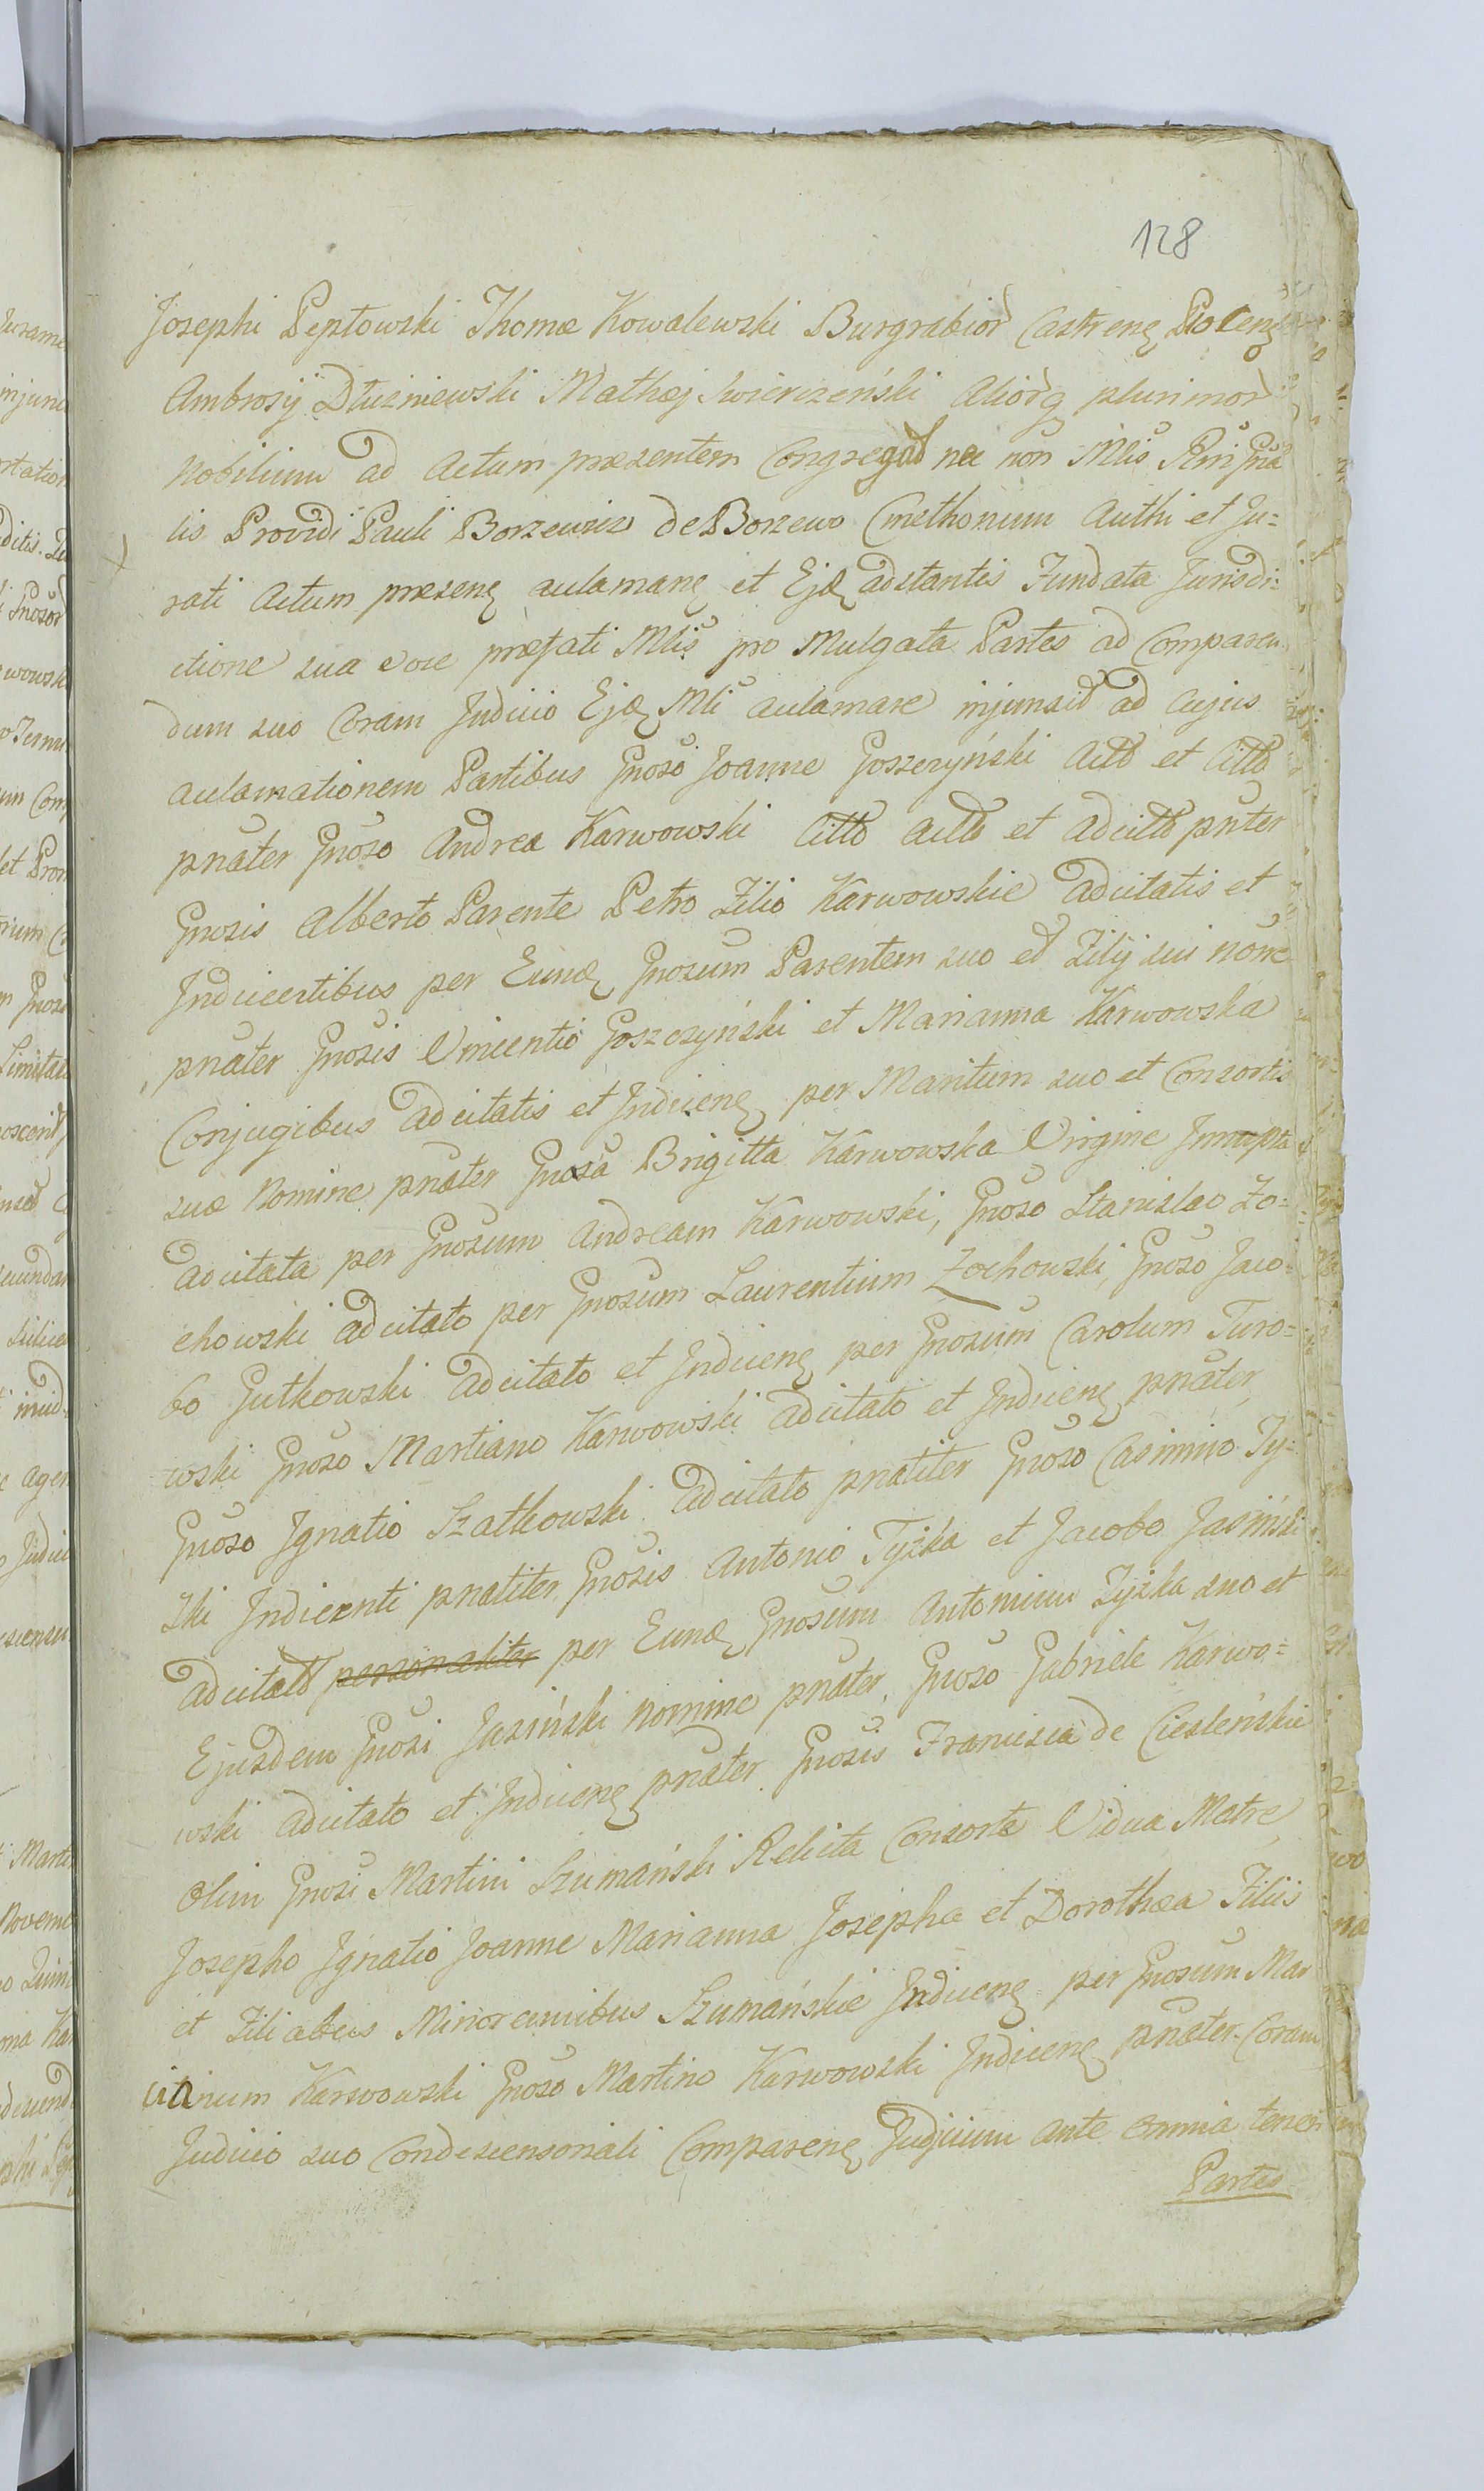 128
Josephi Peptowski Thomæ Kowalewski Burgrabior Castrenę Plocenę
Ambrosij Dłużniewski Mathæj Swierczeński Aliorq plurimor
Nobilium ad Actum præsentem Congregat nec non Mlis Rni Gna
lis Providi Pauli Borzewicz de Borzewo Cmethonum Authi et Ju=
rati Actum præsenę aclamanę et Ejdę adstantis Fundata Jurisdi=
ctione sua Voce præfati Mlis pro Mulgata Partes ad Comparen
dum suo Coram Judicio Ejdę Mli aclamare injunxit ad Cujus
aclamationem Partibus Gnoso Joanne Goszczyński Actto et Citto
pnater Gnoso Andrea Karwowski Citto Actto et Adcitto pnter
Gnosis Alberto Parente Petro Filio Karwowskie Adcitatis et
Indicentibus per Eundę Gnosum Parentem suo et Filij sui nōne
pnater Gnosis Vincentio Goszczyński et Marianna Karwowska
Conjugibus Adcitatis et Indicenę per Maritum suo et Consortis
suæ Nomine pnater Gnosa Brigitta Karwowska Virgine Innupta
Adcitata per Gnosum Andream Karwowski, Gnoso Stanislao Żo=
chowski Adcitato per Gnosum Laurentium Zochowski, Gnoso Jaco=
bo Gutkowski Adcitato et Indicenę per Gnosum Carolum Turo=
wski Gnoso Martiano Karwowski Adcitato et Indicenę pnater
Gnoso Ignatio Szatkowski Adcitato pnatiter Gnoso Casimiro Ty=
ski Indicenti pnatiter Gnosis Antonio Tyżka et Jacobo Jasiński
Adcitatt personaliter per Eundę Gnosum Antonium Tyżka suo et
Ejusdem Gnosi Jasiński Nomine pnater, Gnoso Gabriele Karwo=
wski Adcitato et Indicenę pnater Gnosis Francisca de Ciesleńskie
Olim Gnosi Martini Szumański Relicta Consorte Vidua Matre
Josepho Ignatio Joanne Marianna Josepha et Dorothea Filiis
et Filiabus Minorennibus Szumańskie Indicenę per Gnosum Mar
tianum Karwowski Gnoso Martino Karwowski Indicenę pnater Coram
Judicio suo Condescensoriali Comparenę Judicium ante Omnia teneri
Partes